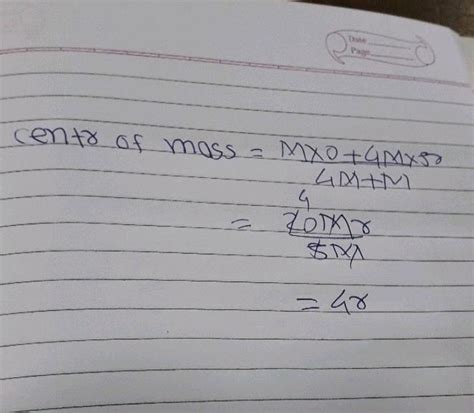 Date
Page
centr of mass = M×0+4M×5r
4M+M
4
= 20Mr
5M
= 4r